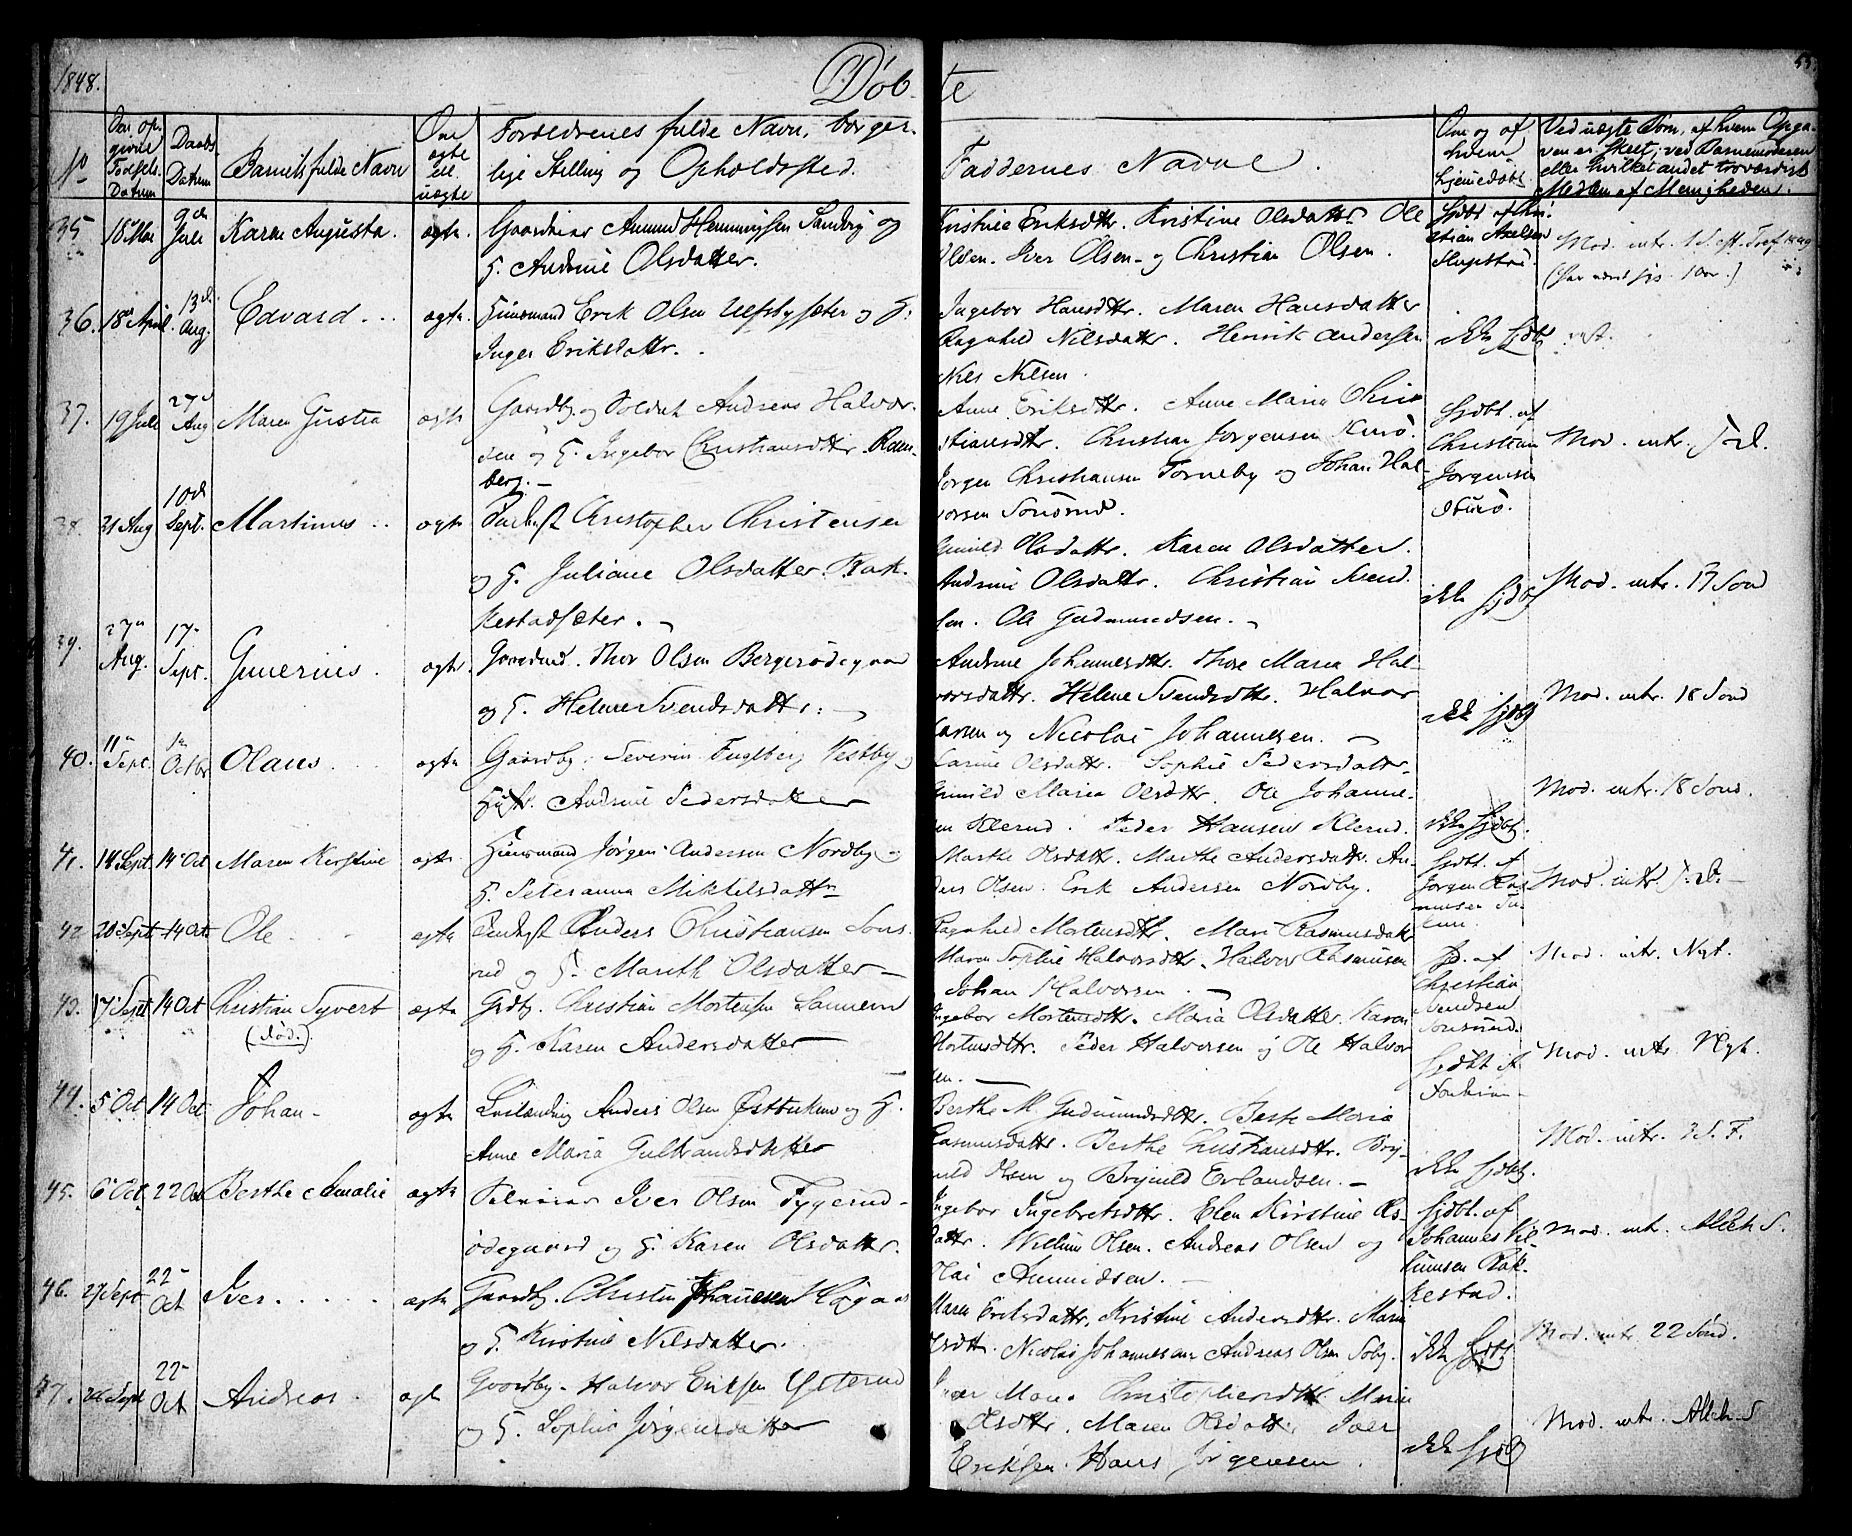 1848.
Døb
te
No
Den op-
givne
Fødsels
Datum
Daabs
Datum
Barnets fulde Navn
Om
ægte
ell.
uægte
Forældrenes fulde Navn, borger-
lige Stilling og Opholdssted.
Faddernes Navne.
Om og af
hvem
hjemedøbt
Ved uægte Børn, af hvem Opga-
ven er skeet, ved Barnemoderen
eller hvilket andet troværdigt
Medlem af Menigheden.
35 18 Mai 9de Juli Karen Augusta. ægte. Gaardeier Amund Hemmingsen Sandvig og
H. Andrine Olsdatter.
Kristine Eriksdttr. Kristine Olsdattr. Ole
Olsen. Iver Olsen og Christian Olsen.
hjdbt af Chri-
stian Axelsen
36. 18de April. 13d. Aug. Edvard ægte. Huusmand Erik Olsen Ulfsbysæter og H.
Inger Eriksdattr.
Ingebor Hansdttr. Maren Hansdatter
Ragnhild Nilsdattr. Henrik Andersen
Nils Nilsen.
ikke hjdbt
37. 19 Juli 27d Aug Maren Gustia ægte Gaardby. og Soldat Andreas Halvor-
sen og H. Ingebor Christiansdttr. Ram-
berg.
Anne Eriksdttr. Anne Maria Chri
stiansdttr. Christian Jørgensen Sturø.
Jørgen Christiansen Torneby og Johan Hal-
vorsen Sonsrud.
hjdbt. af
Christian
Jørgensen
Sturø.
Mod. intr. s. D.
38. 31 Aug 10d Sept. Martinus ægte Christopher Christensen
og H. Juliane Olsdatter Rak-
kestadsæter.
Gunild Olsdattr. Karen Olsdatter.
Andrine Olsdattr. Christian Svend-
sen. Ole Gudmundsen.
ikke hjdbt
Mod. intr. 17 Sønd
39. 27de Aug. 17 Sept. Gunerius. ægte. Thor Olsen Bergerødegaard
og H. Helene Svendsdattr.
Andrine Johannesdttr. Thore Maria Hal-
vorsdattr. Helene Svendsdttr. Halvor
Larsen og Nicolai Johannesen.
ikke hjdbt
Mod. intr. 18 Sønd
40. 11te Sept. 1te Octbr Olaus ægte Gaardby. Severin Fuglberg Vestby
Hustr. Andrine Pedersdatter
Karine Olsdattr. Sophie Pedersdattr.
Gunild Maria Olsdttr. Ole Johanne-
sen Klerud. Peder Hansen Klerud.
ikke hjdbt.
Mod. intr. 18 Sønd.
41. 14 Sept 14 Oct Maren Kirstine ægte Huusmand Jørgen Andersen Nordby
H. Peteranna Mikkelsdattr
Marthe Olsdattr. Marthe Andersdattr. An-
ders Olsen. Erik Andersen Nordby.
hjdbt. af
Jørgen Ras
musen
Mod. intr. s. D.
42 20 Sept 14 Oct Ole ægte Anders Christiansen Sons-
rud og H. Marith Olsdatter
Ragnhild Mortensdttr. Mari Rasmusdatter
Maren Sophie Halvorsdttr. Halvor Rasmusen
Johan Halvorsen.
hjd. af
Christian
Svendsen
Sonsrud.
Mod. intr. Nyt.
43. 17 Sept 14 Oct Christian Syvert
(død.)
ægte Grdby. Christian Mortensen Sannem
og H. Karen Andersdatter
Ingebor Mortensdttr. Maria Olsdatter. Karen
Mortensdttr. Peder Halvorsen og Ole Halvor
sen.
hjdbt af
Mod. intr. Nyt.
44. 5 Oct 14 Oct Johan ægte Anders Olsen Østtukun og H.
Anne Maria Gulbrandsdatter
Berthe M. Gudmundsdttr. Berthe Maria
Rasmusdattr. Berthe Christiansdttr. Bry-
nild Olsen og Brynild Erlandsen.
ikke hjdbt.
Mod. intr. 3 S. F.
45. 6 Oct 22 Oct Berthe Amalie ægte Iver Olsen Tyggerud-
ødegaard og H. Karen Olsdattr.
Ingebor Ingebretsdttr. Elen Kirstine Ols-
dattr. Willum Olsen. Andreas Olsen og
Olai Amundsen.
hjdbt. af
Johannes Vil
lumsen Rak-
kestad.
Mod. intr. Alleh S.
46. 27 Sept 22 Oct Iver ægte Gaardby. Christian Johannesen Haga
og H. Kirstine Nilsdatter.
Maren Eriksdattr. Kristine Andersdttr. Maria
Olsdttr. Nicolai Johannesen Andreas Olsen Soby.
ikke hjdbt
Mod. intr. 22 Sønd.
47. 26 Sept 22 Oct Andreas ægte Gaardby. Halvor Eriksen Ysterud
og H. Sophie Jørgensdatter
Maria Christophersdttr Maria
Olsdttr. Maren Olsdattr. Iver
Eriksen. Hans Jørgensen.
ikke hjdbt
Mod. intr. Alleh. S